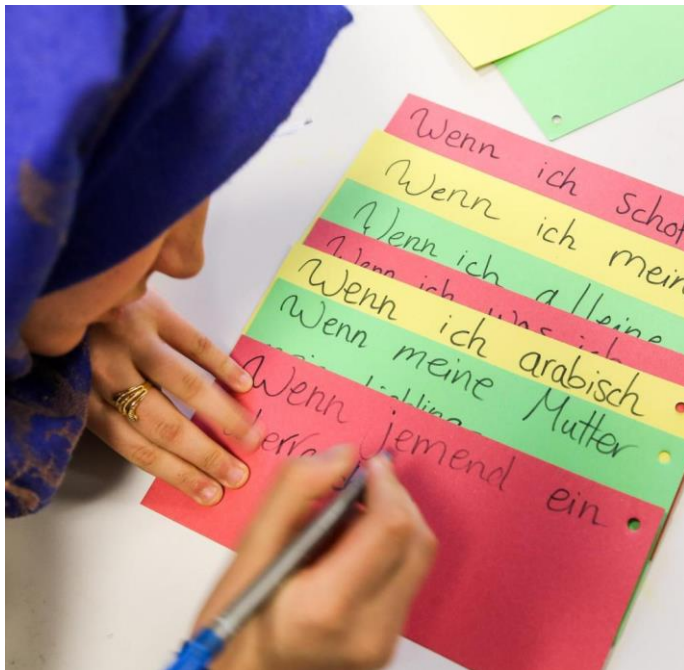 Wenn ich
Wenn ich mein
Wenn ich alleine
Wenn ich was ich
Wenn ich arabisch
Wenn meine Mutter
Wenn jemend ein